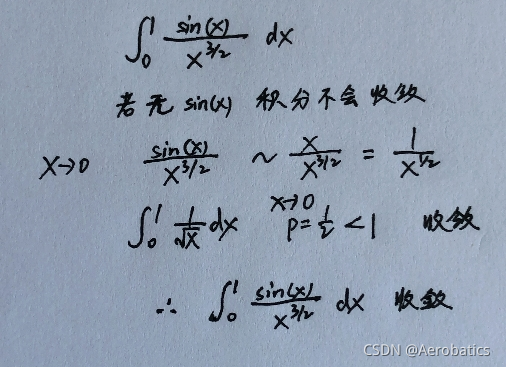 ∫₀¹ sin(x)/x^{3/2} dx
若无 sin(x) 积分不会收敛
x→0 sin(x)/x^{3/2} ~ x/x^{3/2} = 1/x^{1/2}
x→0
∫₀¹ 1/√x dx P=1/2 <1 收敛
∴ ∫₀¹ sin(x)/x^{3/2} dx 收敛
CSDN @Aerobatics